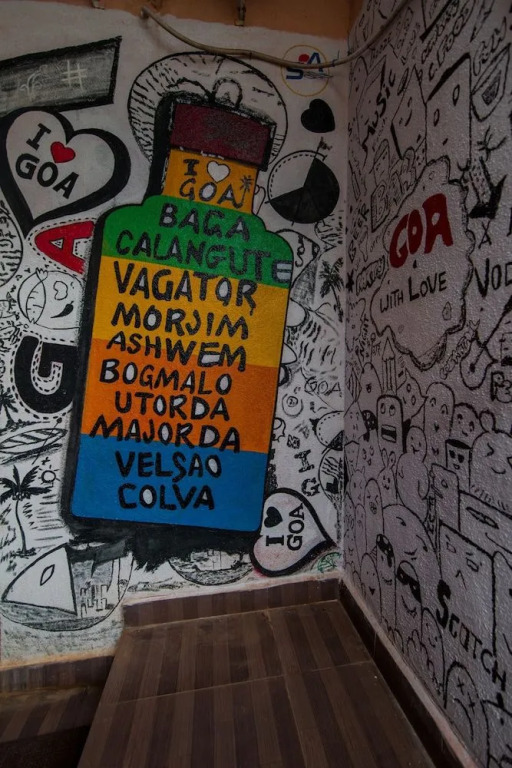 #
I
GOA
I
GOA
BAGA
CALANGUTE
VAGATOR
MORJIM
ASHWEM
BOGMALO
UTORDA
MAJORDA
VELSAO
COLVA
GOA
I
GOA
MUSIC
GOA
WITH LOVE
SCOTCH